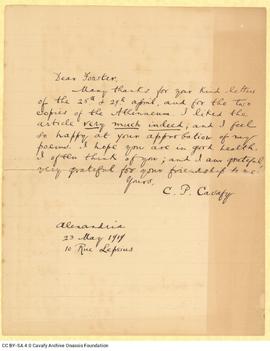 Dear Forster,
Many thanks for your kind letters
of the 25th & 29th April, and for the two
copies of the Athenæum. I liked the
article very much indeed; and I feel
so happy at your approbation of my
poems. I hope you are in good health.
I often think of you; and I am grateful,
very grateful for your friendship to me.
Yours,
C. P. Cavafy
Alexandria
23 May 1919
10 Rue Lepsius
CC BY-SA 4.0 Cavafy Archive Onassis Foundation